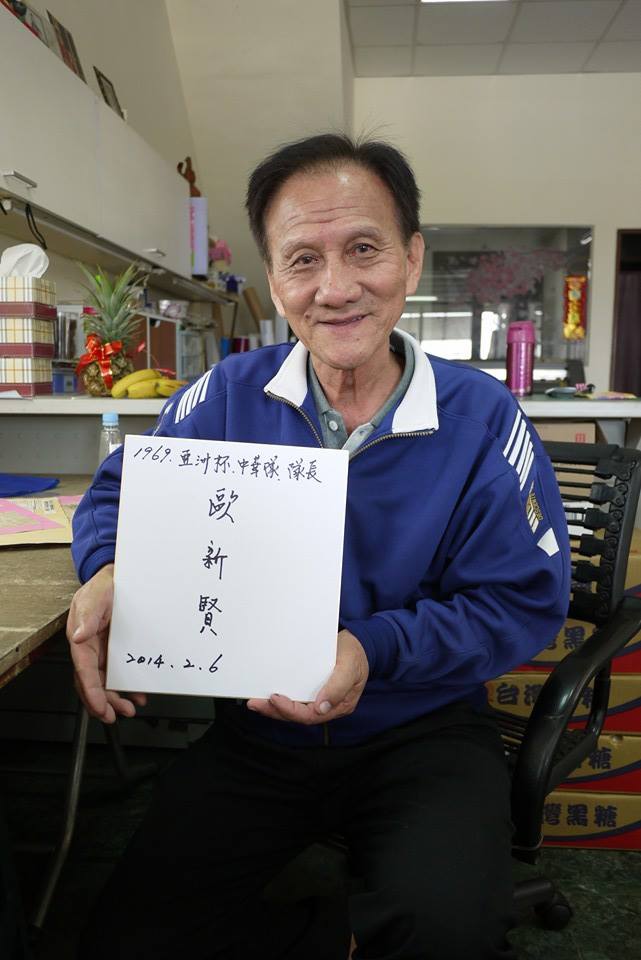 1969.亞洲杯.中華隊.隊長
歐
新
賢
2014.2.6
黑糖
台灣黑糖
糖
灣黑糖